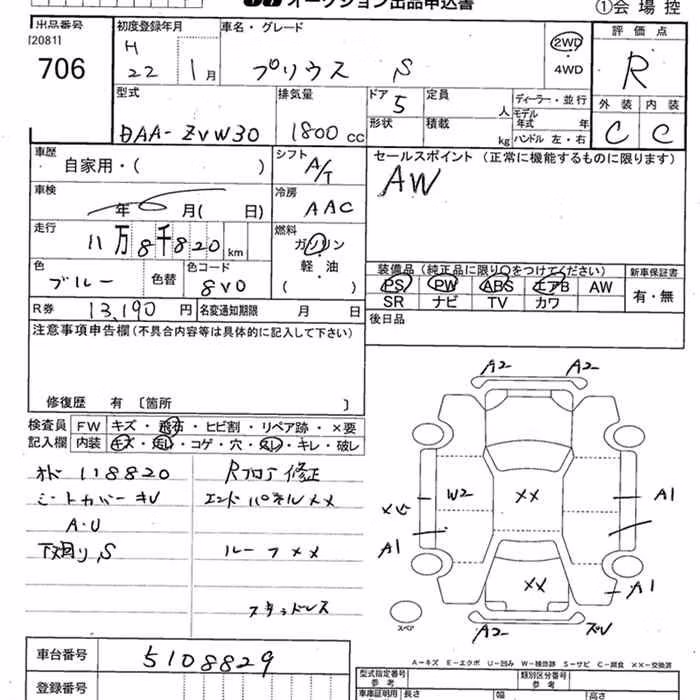 オークション出品申込書
①会場控
出品番号 初度登録年月 車名・グレード 評価点
[20811]
706
H 22 1月 プリウス S 2WD・4WD R
型式 排気量 ドア 5 定員 人 ディーラー・並行 外装 内装
DAA-ZVW30 1800cc 形状 積載 kg モデル年式 年 C C
ハンドル 左・右
車歴 シフト セールスポイント (正常に機能するものに限ります)
自家用・( ) A/T AW
車検 冷房
年6月( 日) AAC
走行 燃料
11万8千820km ガソリン
軽・油
( )
色 色替 色コード 装備品 (純正品に限り○をつけてください) 新車保証書
ブルー 8V0 PS PW ABS エアB AW 有・無
SR ナビ TV カワ
R券 13,190円 名変通知期限 月 日 後日品
注意事項申告欄 (不具合内容等は具体的に記入して下さい)
修復歴 有 〔箇所 〕
検査員 FW キズ・飛石・ヒビ割・リペア跡・×要
記入欄 内装 キズ・汚れ・コゲ・穴・スレ・キレ・破レ
118820 Rフロア修正
シートカバー エンドパネル××
A・U
下廻りS ルーフ××
スタッドレス
A2 A2
W2 ×× A1
A1
×× A1
スペア A2
A-キズ E-エクボ U-凹み W-補修跡 S-サビ C-腐食 ××-交換済
車台番号 5108829
型式指定番号 類別区分番号
参考 参考
登録番号 車庫証明用 長さ 幅 高さ